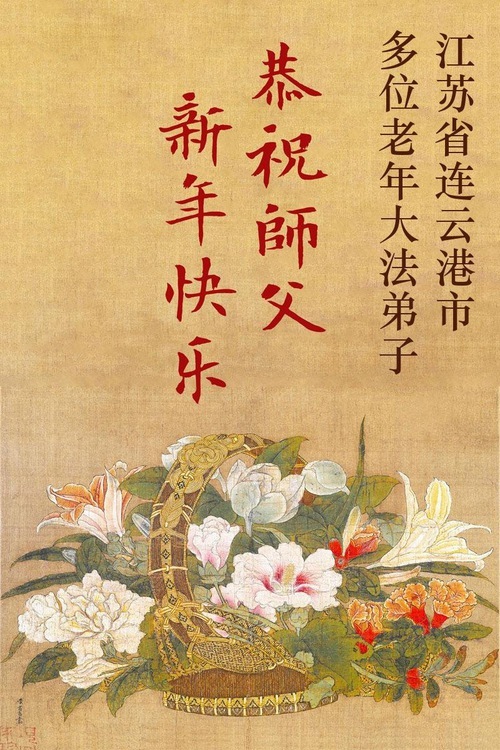 江苏省连云港市
多位老年大法弟子
恭祝師父
新年快乐